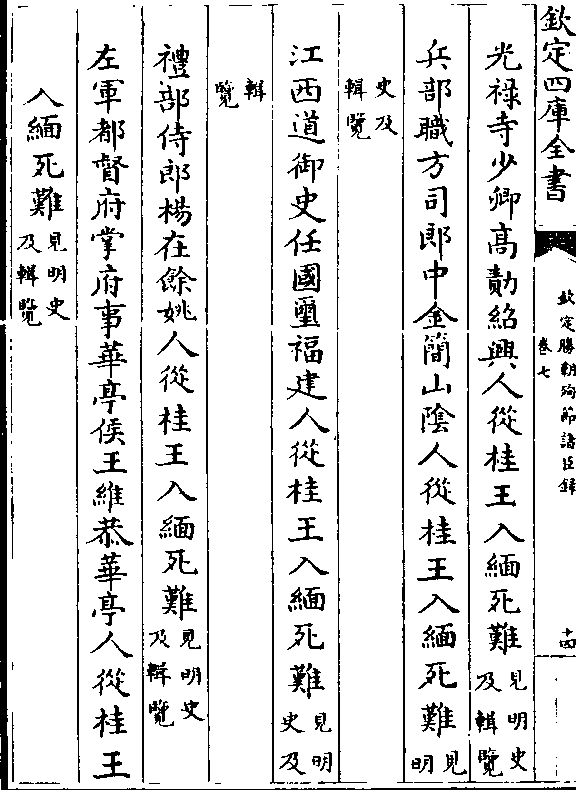 欽定四庫全書
欽定勝朝殉節諸臣録
卷七
十四
光祿寺少卿高勣紹興人從桂王入緬死難見明史及輯覽
兵部職方司郎中金簡山陰人從桂王入緬死難見明
史及輯覽
江西道御史任國璽福建人從桂王入緬死難見明史及
輯覽
禮部侍郎楊在餘姚人從桂王入緬死難見明史及輯覽
左軍都督府掌府事華亭侯王維恭華亭人從桂王
入緬死難見明史及輯覽